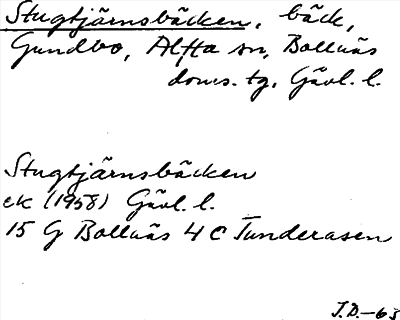 Stugtjärnsbäcken, bäck,
Gundbo, Alfta sn, Bollnäs
doms. tg, Gävl. l.
Stugtjärnsbäcken
ek (1958) Gävl. l.
15 G Bollnäs 4 c Tunderåsen
J.D.-63